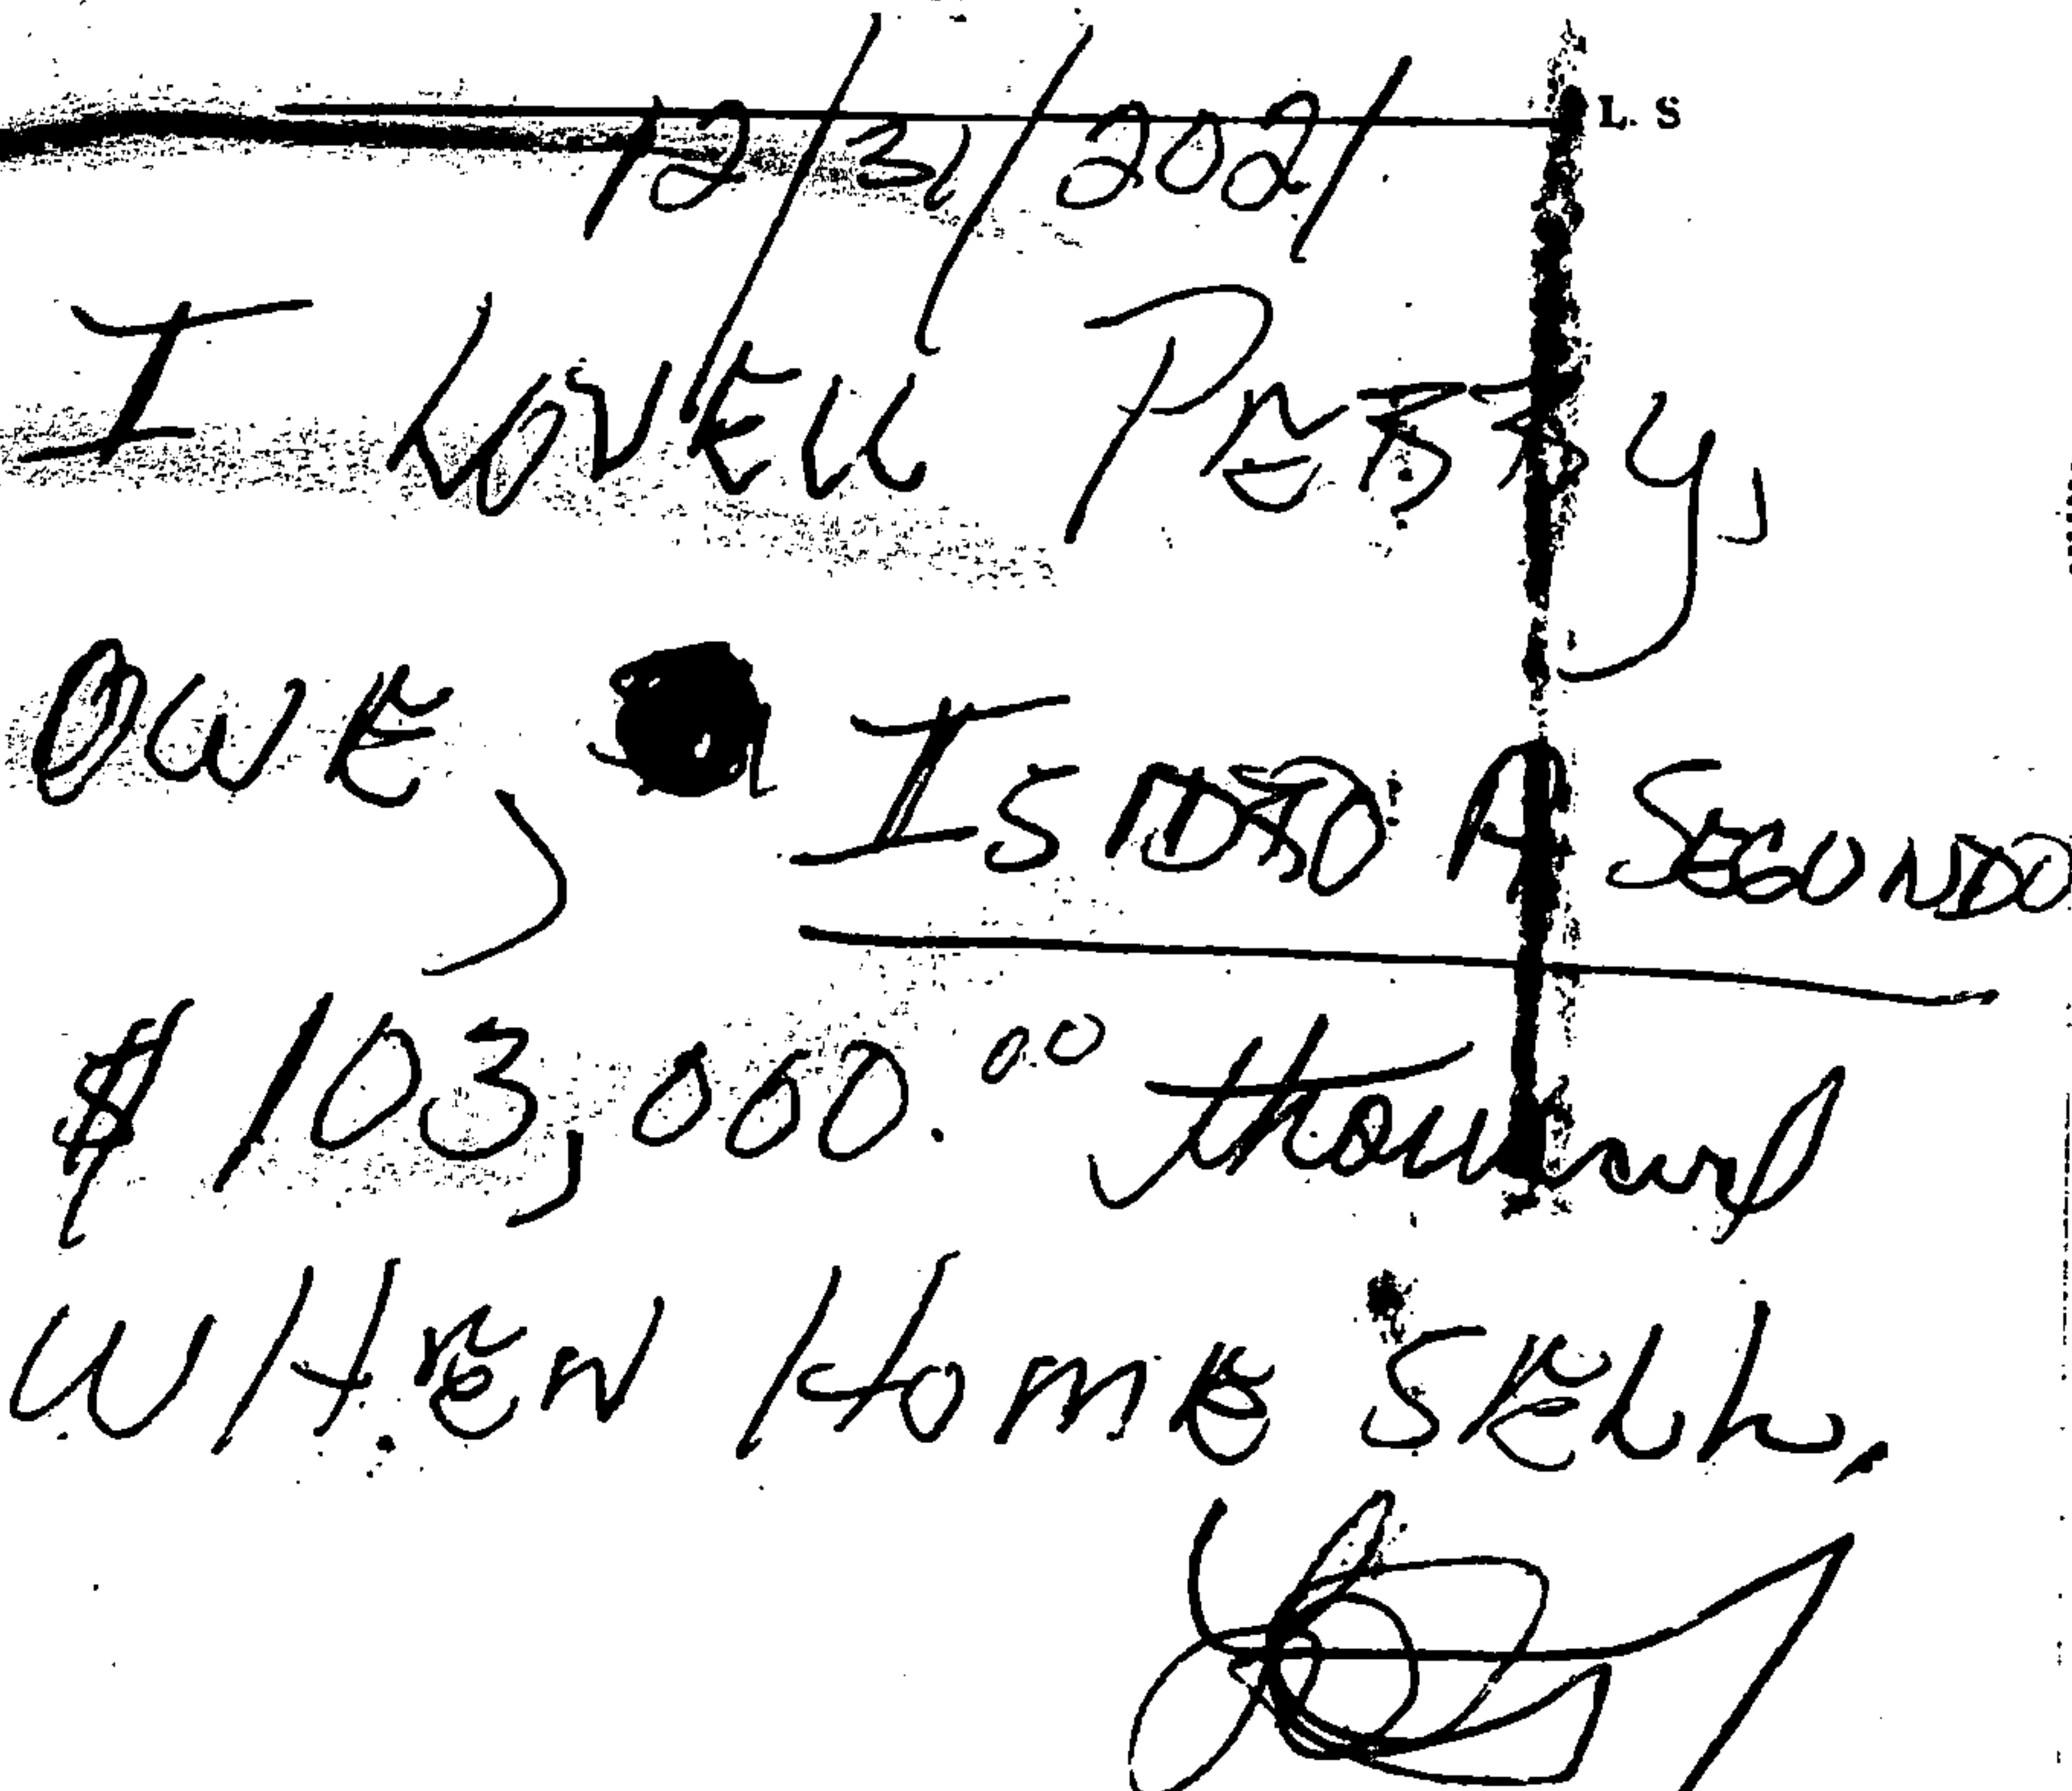 L. S
12/31/2021
I LOVELL PRETTY,
OWE, ISIDRO A SEGUNDO
$ 103,000.00 thousand
WHEN HOME SELL.